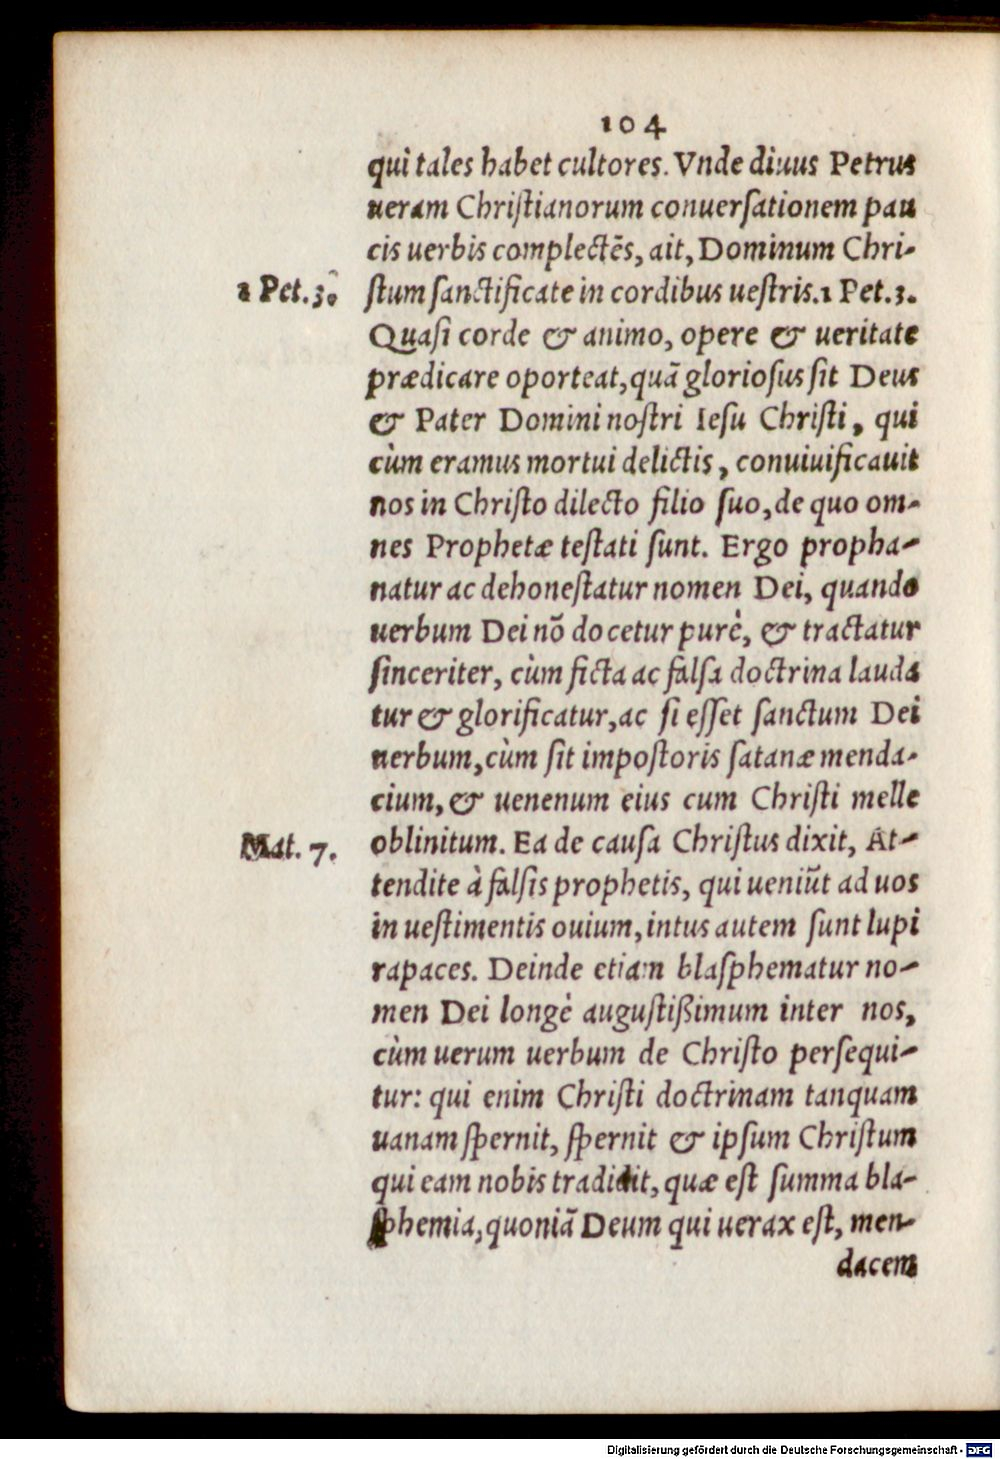 104
qui tales habet cultores. Vnde diuus Petrus
ueram Chriſtianorum conuerſationem pau
cis uerbis complectẽs, ait, Dominum Chri-
1 Pet. 3. ſtum ſanctificate in cordibus ueſtris. 1 Pet. 3.
Quaſi corde & animo, opere & ueritate
prædicare oporteat, quã glorioſus ſit Deus
& Pater Domini noſtri Ieſu Chriſti, qui
cùm eramus mortui delictis, conuiuificauit
nos in Chriſto dilecto filio ſuo, de quo om-
nes Prophetæ teſtati ſunt. Ergo propha-
natur ac dehoneſtatur nomen Dei, quando
uerbum Dei nõ docetur purè, & tractatur
ſinceriter, cùm ficta ac falſa doctrina lauda
tur & glorificatur, ac ſi eſſet ſanctum Dei
uerbum, cùm ſit impoſtoris ſatanæ menda-
cium, & uenenum eius cum Chriſti melle
Mat. 7. oblinitum. Ea de cauſa Chriſtus dixit, At-
tendite à falſis prophetis, qui ueniũt ad uos
in ueſtimentis ouium, intus autem ſunt lupi
rapaces. Deinde etiam blaſphematur no-
men Dei longè auguſtißimum inter nos,
cùm uerum uerbum de Chriſto perſequi-
tur: qui enim Chriſti doctrinam tanquam
uanam ſpernit, ſpernit & ipſum Chriſtum
qui eam nobis tradidit, quæ eſt ſumma bla-
ſphemia, quoniã Deum qui uerax eſt, men-
dacem
Digitalisierung gefördert durch die Deutsche Forschungsgemeinschaft - DFG